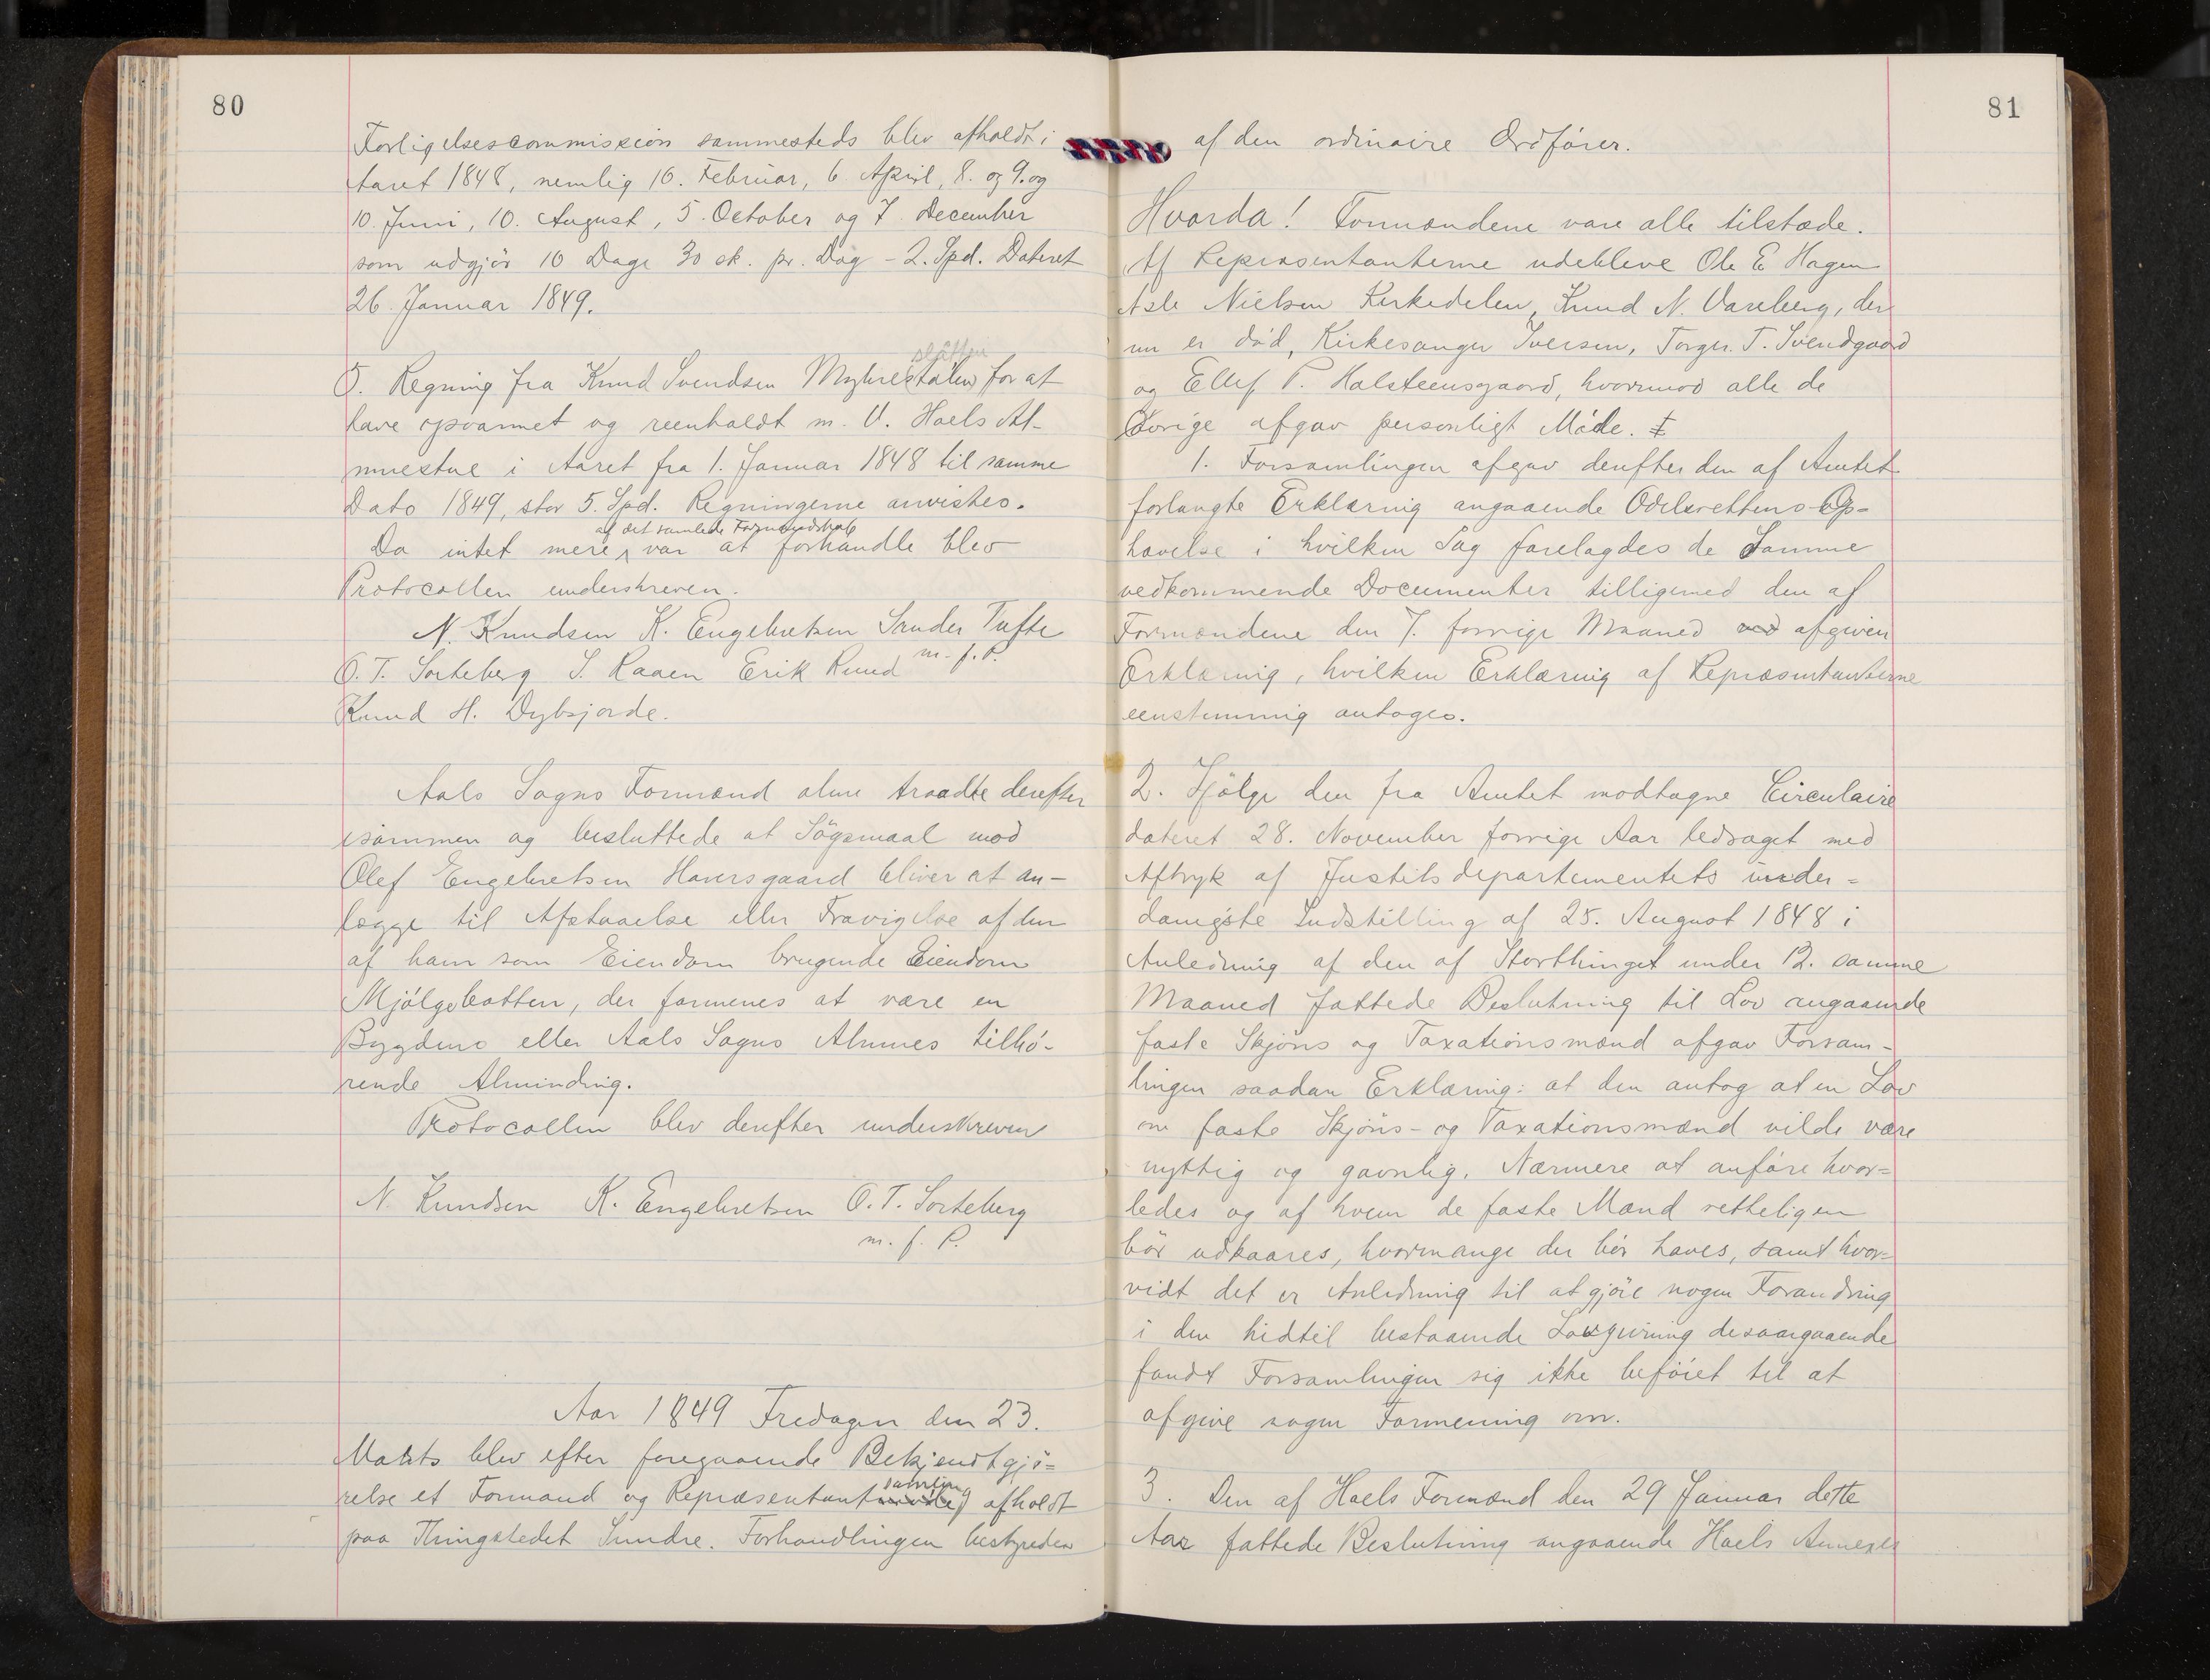 80
Forligelsescommission sammesteds blev afholdt i
Aaret 1848, nemlig 16. Februar, 6. April, 8. og 9. og
10. Juni, 10. August, 5. October og 7. December
som udgjör 10 Dage 30 sk. pr. Dag - 2. Spd. Dateret
26. Januar 1849.
slåtten
5. Regning fra Knud Svendsen Myhrestølen for at
have opvarmet og reenholdt m. V. Hoels Al-
muestue i Aaret fra 1. Januar 1848 til samme
Dato 1849, stor 5. Spd. Regningerne anvistes.
af det samlede Formandskab
Da intet mere var at forhandle blev
Protocollen underskreven.
N. Knudsen K. Engebretsen Sander Tufte
m. f. P.
O. T. Sorteberg S. Raaen Erik Ruud
Knud H. Dybsjorde.
Aals Sogns Formænd alene traadte derefter
isammen og besluttede at Sögsmaal mod
Olef Engebretsen Haversgaard bliver at an-
lægge til Afstaaelse eller Fravigelse af den
af ham som Eiendom brugende Eiendom
Mjölgebotten, der formenes at være en
Bygdens eller Aals Sogns Almues tilhö-
rende Alminding.
Protocollen blev derefter underskreven
N. Knudsen K. Engebretsen O. T. Sorteberg
m. f. P.
Aar 1849 Fredagen den 23.
Marts blev efter foregaaende Bekjendtgjö=
samling
relse et Formand og Repræsentantmöde afholdt
paa Thingstedet Sundre. Forhandlingen bestyredes
81
af den ordinaire Ordförer.
Hvorda! Formændene vare alle tilstæde.
Af Repræsentanterne udebleve Ole E Hagen
Asle Nielsen Kirkedelen, Knud N. Vareberg, der
nu er död, Kirkesanger Iversen, Torger. T. Svendgaard
og Ellef P. Halsteensgaard, hvorimod alle de
Övrige afgav personligt Möde.
1. Forsamlingen afgav derefter den af Amtet
forlangte Erklæring angaaende Odelsrettens Op=
hævelse i hvilken Sag forelagdes de Samme
vedkommende Documenter tilligemed den af
Formændene den 7. forrige Maaned ved afgiven
Erklæring, hvilken Erklæring af Repræsentanterne
eenstemmig antoges.
2. Ifölge den fra Amtet modtagne Circulaire
dateret 28. November forrige Aar ledsaget med
Aftryk af Justitsdepartementets under=
danigste Indstilling af 25. August 1848 i
Anledning af den af Storthinget under 12. samme
Maaned fattede Beslutning til Lov angaaende
faste Skjöns og Taxationsmænd afgav Forsam-
lingen saadan Erklæring: at den antog at en Lov
om faste Skjöns- og Taxationsmænd vilde være
nyttig og gavnlig. Nærmere at anföre hvor=
ledes og af hvem de faste Mænd retteligen
bör udkaares, hvormange der bör haves, samt hvor=
vidt det er Anledning til at gjöre nogen Forandring
i den hidtil bestaaende Lovgivning desaangaaende
fandt Forsamlingen sig ikke beföiet til at
afgive nogen Formening om.
3. Den af Hoels Formænd den 29 Januar dette
Aar fattede Beslutning angaaende Hoels Annexes